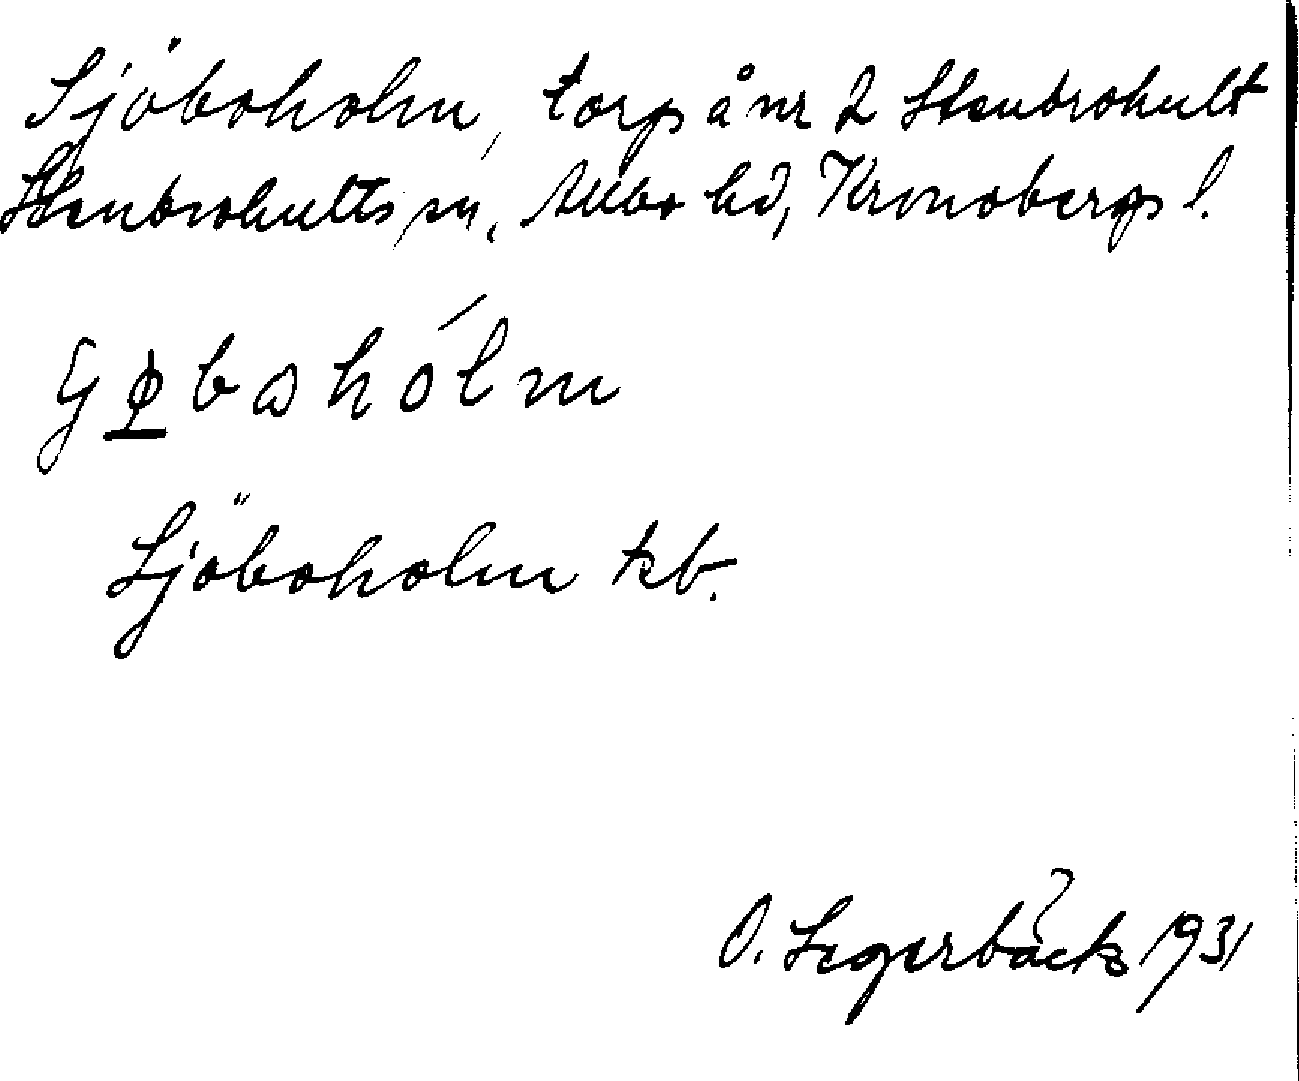 Sjöboholm, torp å nr 2 Stenbrohult
Stenbrohults sn, Allbo hd, Kronobergs l.
Sjöboholm kb.
O. Segerbäck 1931